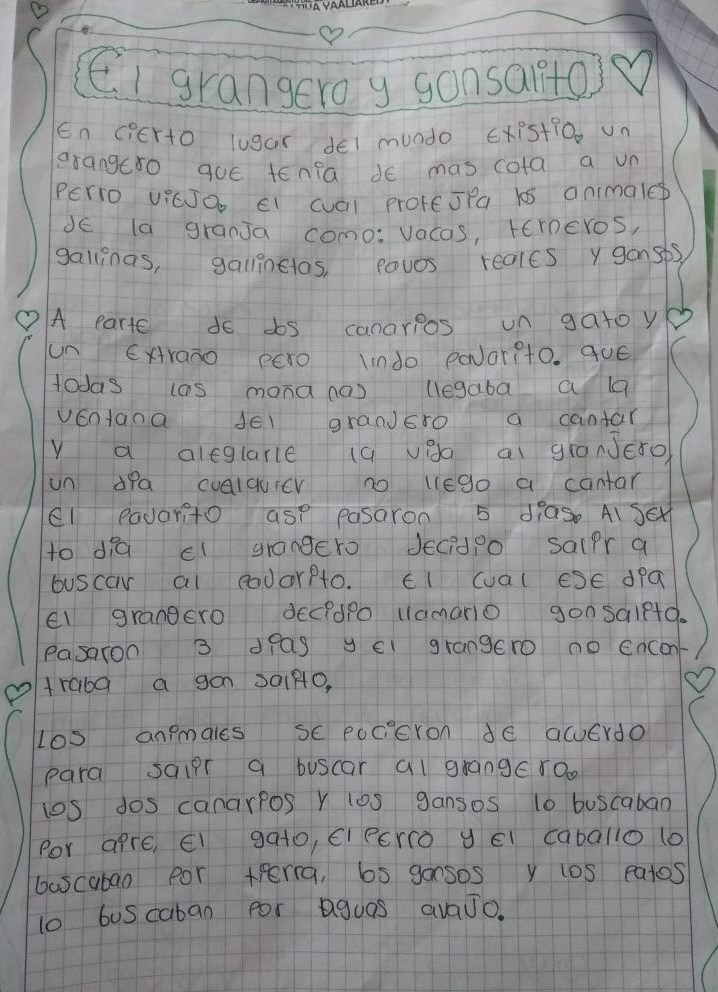 El grangero y gonsalito
En cierto lugar del mundo existio, un
grangero que tenia de mas cota a un
Perro viejo. el cual protejia los animales
de la granja como: vacas, terneros,
gallinas, gallinetas, pavos reales y gansos
A parte de dos canarios un gato y
un Extraño pero lindo pajarito. que
todas las maña nas llegaba a la
ventana del granjero a cantar
y a aleglarle la vida al granjero,
un dia cualquier no llego a cantar
El pajarito asi pasaron 5 dias. Al sex
to dia el grangero decidio salir a
buscar al pajarito. El cual ese dia
el grangero decidio llamarlo gonsalito.
Pasaron 3 dias y el grangero no encon-
traba a gon salito,
los animales se pocieron de acuerdo
para salir a buscar al grangero.
los dos canarios y los gansos lo buscaban
Por aire, El gato, el Perro y el caballo lo
buscaban por tierra, los gansos y los patos
lo bus caban por aguas avajo.